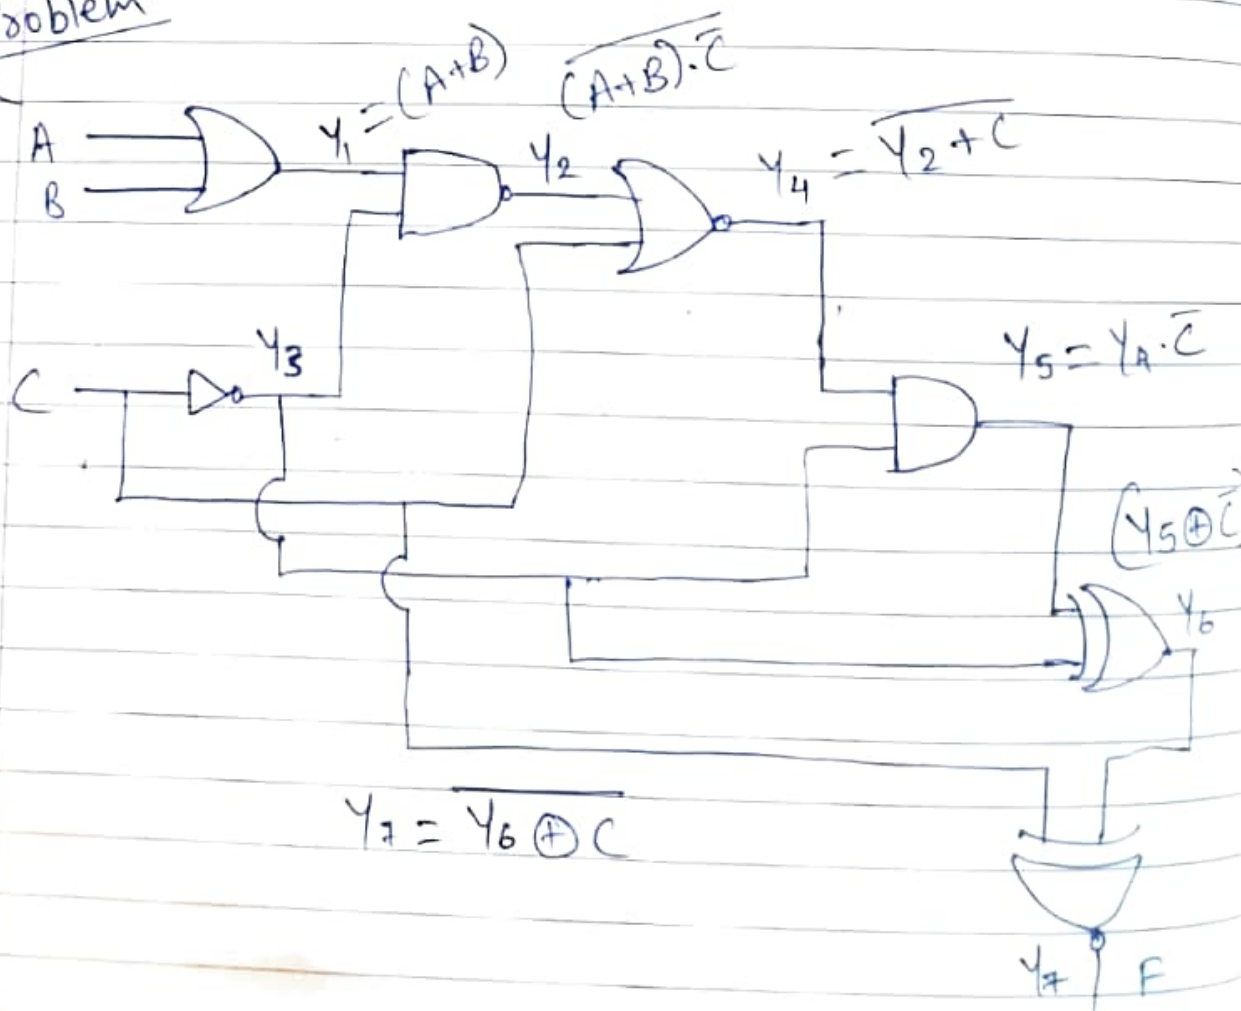 roblem
Y₁ = (A+B)
$\overline{(A+B) \cdot \overline{C}}$
A
B
Y₂
Y₄ = $\overline{Y_2 + C}$
Y₃
C
Y₅ = Y₄ · $\overline{C}$
(Y₅ ⊕ $\overline{C}$)
Y₆
Y₇ = $\overline{Y_6 ⊕ C}$
Y₇ F